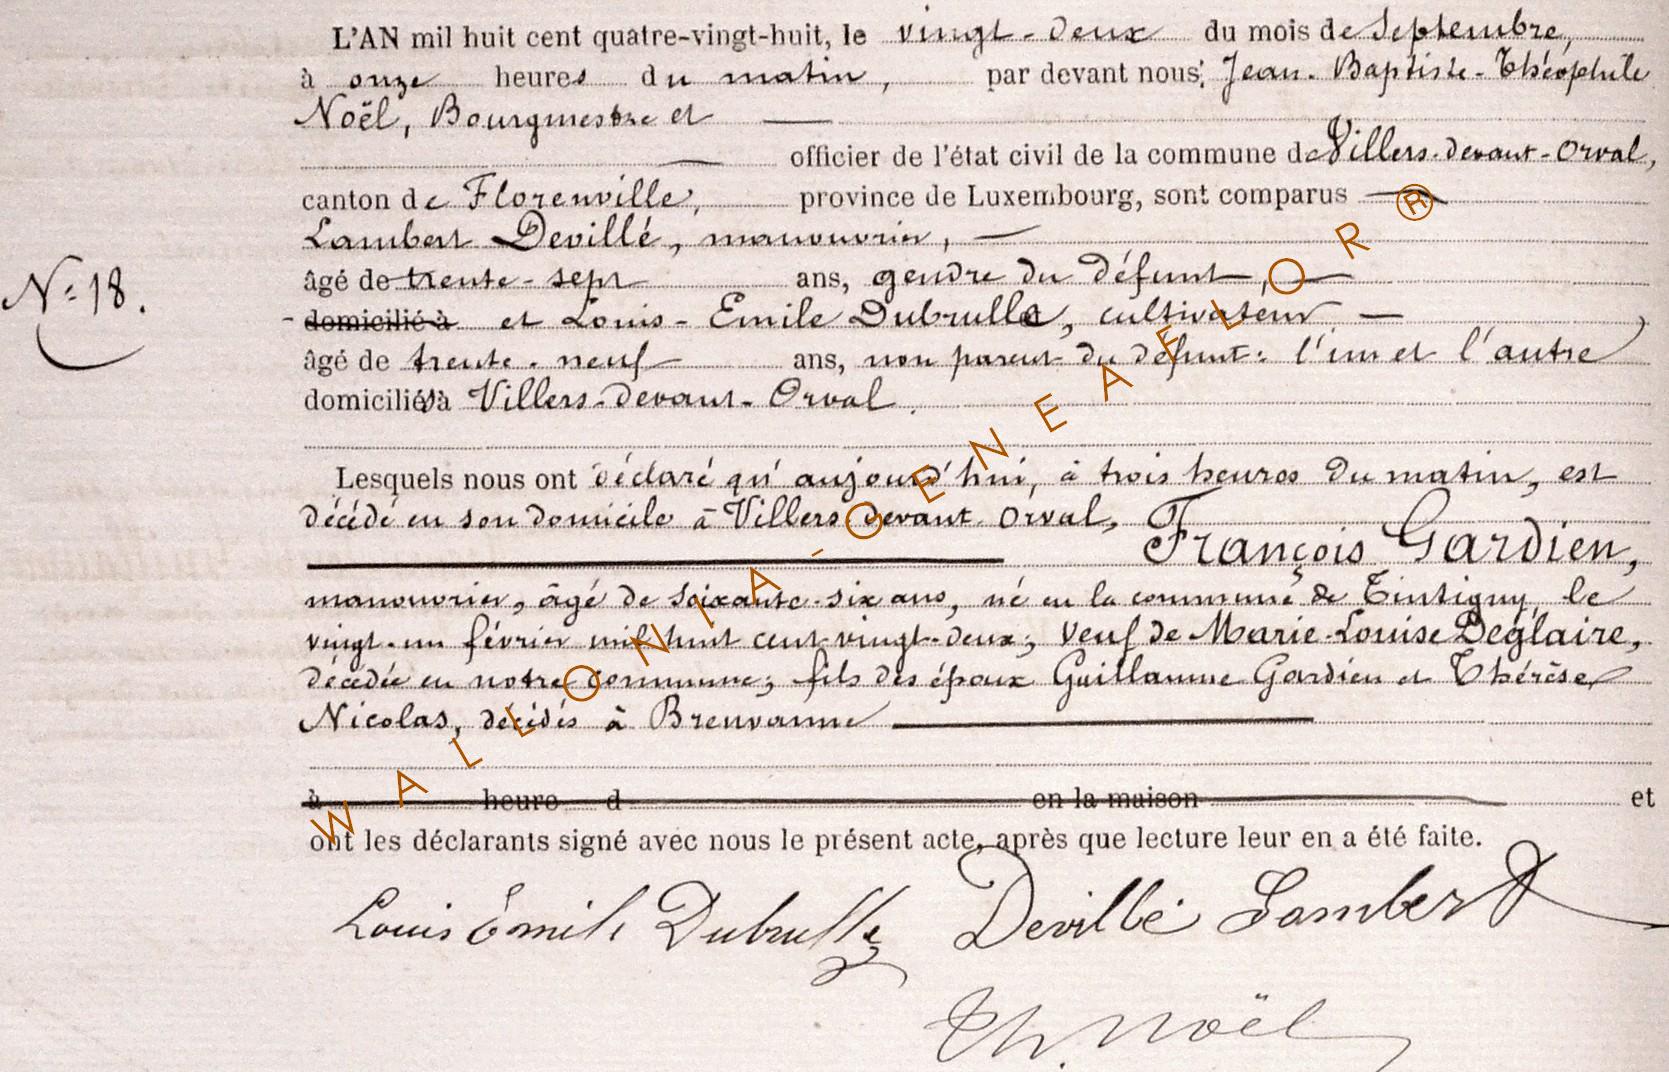 L'AN mil huit cent quatre-vingt-huit, le vingt-deux du mois de Septembre,
à onze heures du matin, par devant nous: Jean-Baptiste-Théophile
Noël, Bourgmestre et
officier de l'état civil de la commune de Villers-devant-Orval,
canton de Florenville, province de Luxembourg, sont comparus
Lambert Devillé, manouvrier,
N: 18.
âgé de trente-sept ans, gendre du défunt,
domicilié à et Louis-Emile Dubrulle, cultivateur
âgé de trente-neuf ans, non parent du défunt: l'un et l'autre
domiciliés à Villers-devant-Orval.
Lesquels nous ont déclaré qu'aujourd'hui, à trois heures du matin, est
décédé en son domicile à Villers-devant-Orval,
François Gardien,
manouvrier, âgé de soixante-six ans, né en la commune de Tintigny, le
vingt-un février mil huit cent vingt-deux; veuf de Marie-Louise Deglaire,
décédée en notre commune; fils des époux Guillaume Gardien et Thérèse
Nicolas, décédés à Breuvanne
à heure d en la maison et
ont les déclarants signé avec nous le présent acte, après que lecture leur en a été faite.
Louis Emile Dubrulle Devillé Lambert
Th. Noël
WALLONIA-GENEAFLOR®